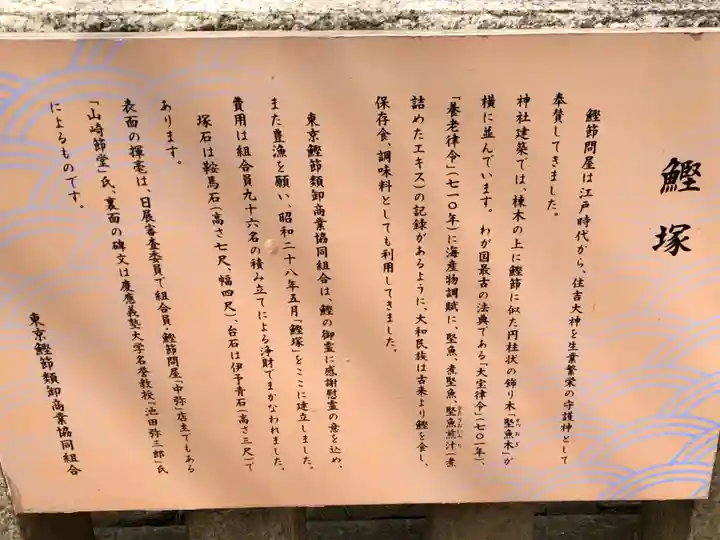 鰹塚
鰹節問屋は江戸時代から、住吉大神を生業繁栄の守護神として
奉賛してきました。
神社建築では、棟木の上に鰹節に似た円柱状の飾り木「堅魚木」が
横に並んでいます。わが国最古の法典である「大宝律令」(七〇一年)、
「養老律令」(七一〇年)に海産物調賦に、堅魚、煮堅魚、堅魚煎汁(煮
詰めたエキス)の記録があるように、大和民族は古来より鰹を食し、
保存食、調味料としても利用してきました。
東京鰹節類卸商業協同組合は、鰹の御霊に感謝慰霊の意を込め、
また豊漁を願い、昭和二十八年五月「鰹塚」をここに建立しました。
費用は組合員九十六名の積み立てによる浄財でまかなわれました。
塚石は鞍馬石(高さ七尺、幅四尺)、台石は伊予青石(高さ三尺)で
あります。
表面の揮毫は、日展審査委員で組合員・鰹節問屋「中弥」店主でもある
「山崎節堂」氏、裏面の碑文は慶應義塾大学名誉教授「池田弥三郎」氏
によるものです。
東京鰹節類卸商業協同組合